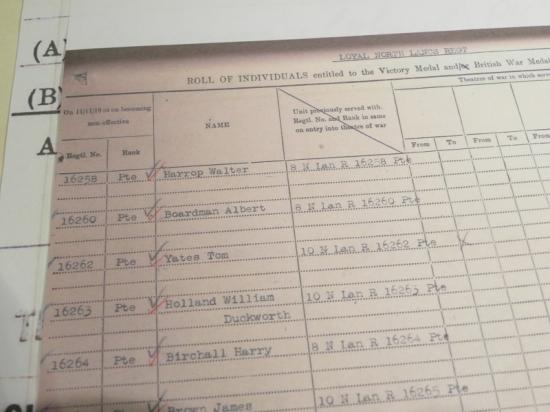 (A)
(B)
A
LOYAL NORTH LANCS REGT
ROLL OF INDIVIDUALS entitled to the Victory Medal and/or British War Medal
Theatres of war in which
On 11/11/18 or on becoming
non-effective
Regtl. No.
Rank
NAME
Unit previously served with.
Regtl. No. and Rank in same
on entry into theatre of war
From
To
From
To
From
16258 Pte Harrop Walter 8 N Lan R 16258 Pte
16260 Pte Boardman Albert 8 N Lan R 16260 Pte
16262 Pte Yates Tom 10 N Lan R 16262 Pte
16263 Pte Holland William 10 N Lan R 16263 Pte
Duckworth
16264 Pte Birchall Harry 8 N Lan R 16264 Pte
Brown James 10 N Lan R 16265 Pte